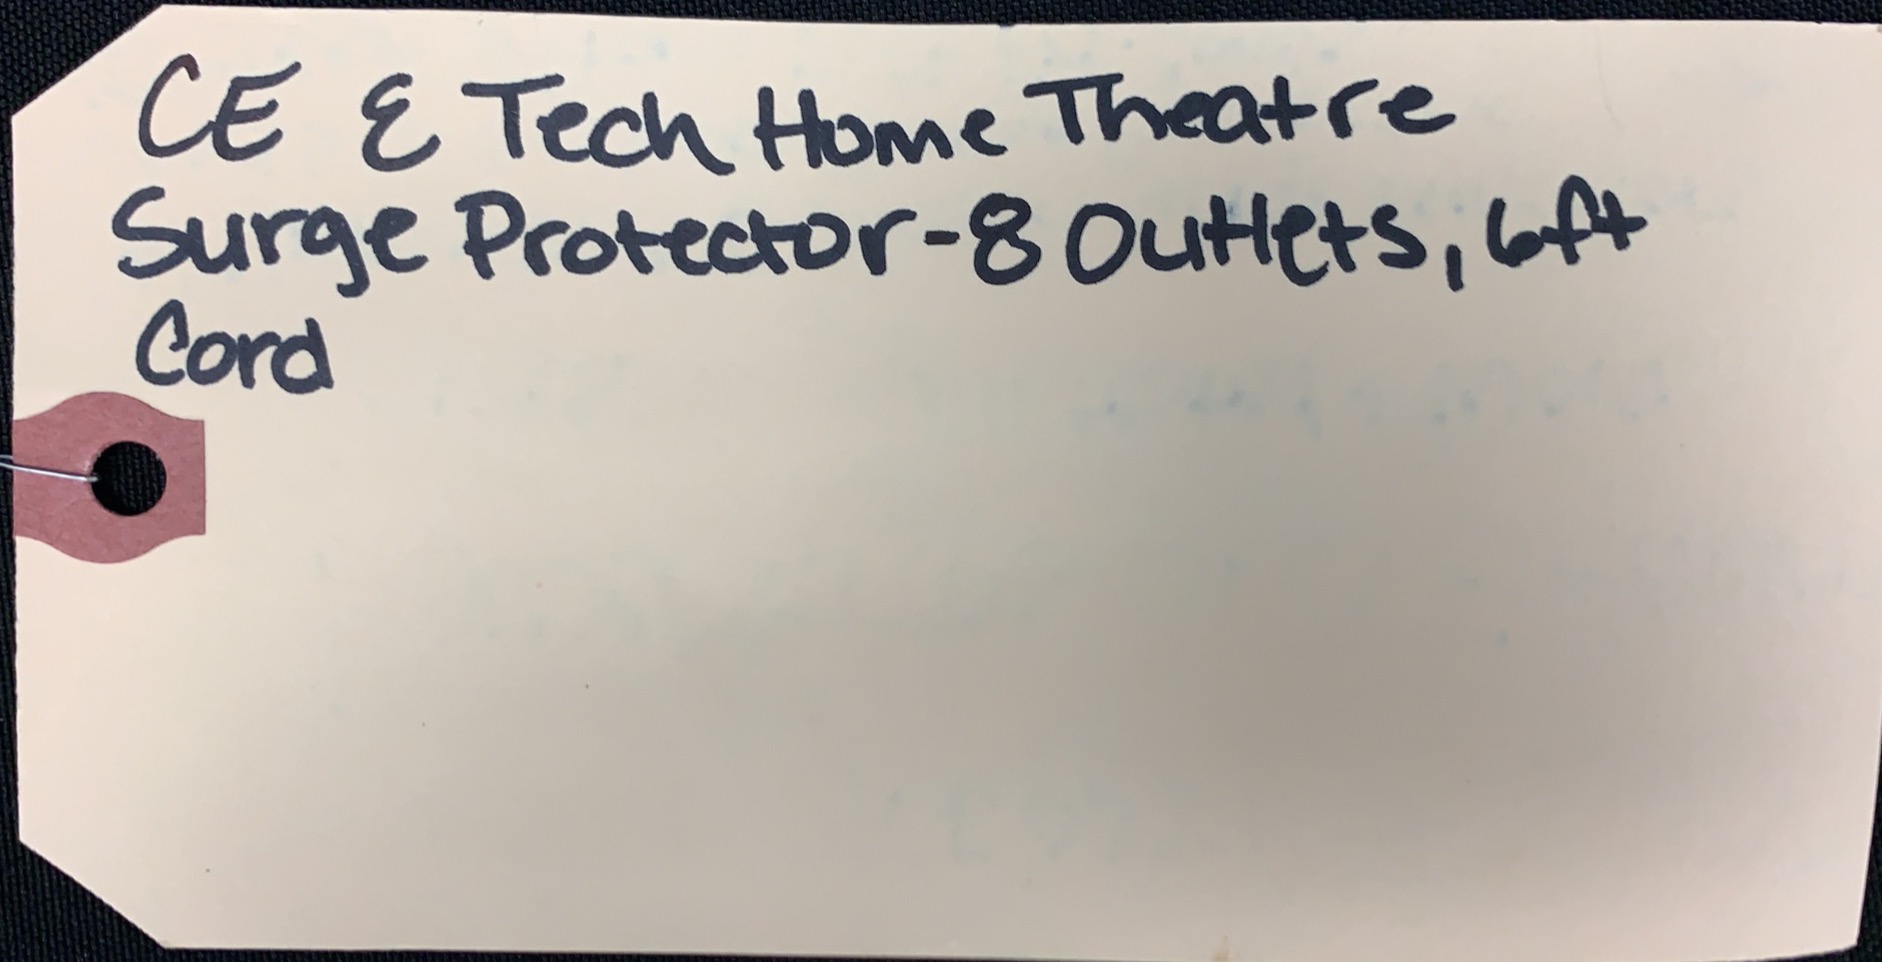 CE & Tech Home Theatre
Surge Protector-8 Outlets, 6ft
Cord